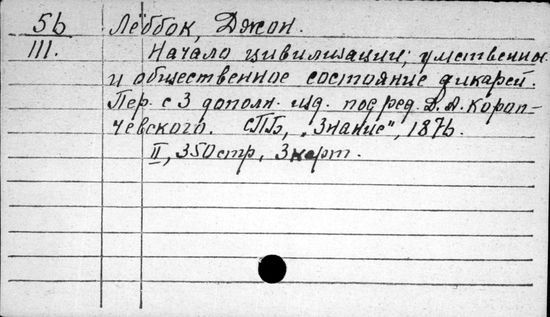 56 Лёббок, Джон.
III. Начало цивилизации; умственны.
и общественное состояние дикарей.
Пер. с 3 дополн. изд. под ред. Д. А. Короп-
чевского. СПБ, „Знание", 1876.
II, 350 стр, 3 карт.